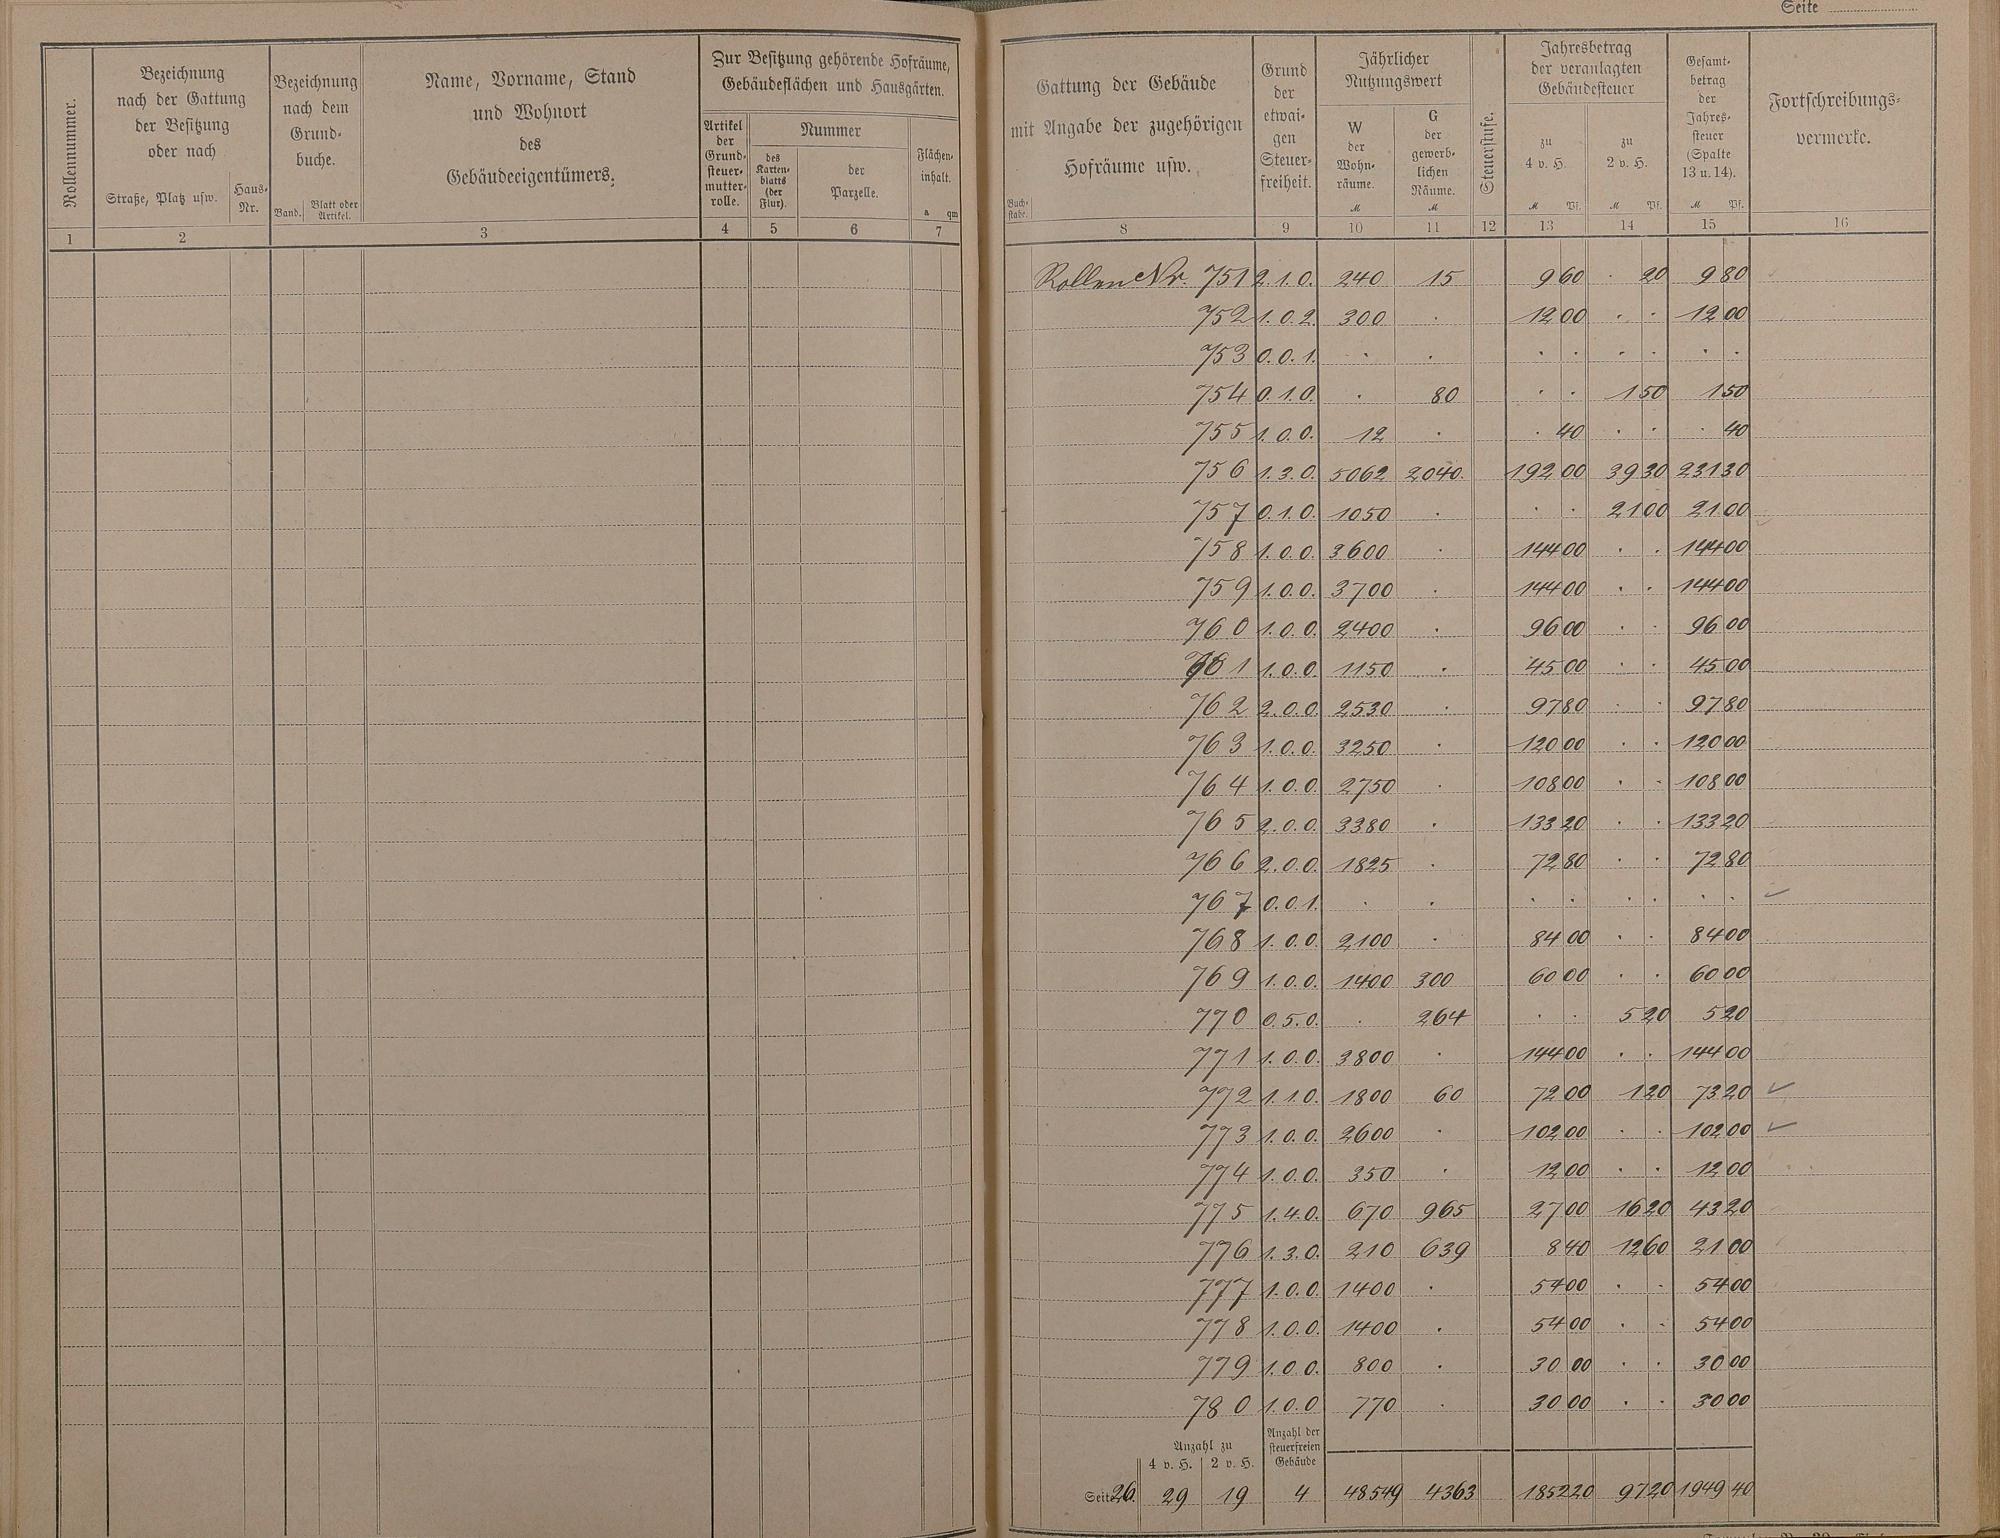 Seite
Rollennummer.
Bezeichnung
nach der Gattung
der Besitzung
oder nach
Straße, Platz usw.
Haus-
Nr.
Bezeichnung
nach dem
Grund-
buche.
Band.
Blatt oder
Artikel.
Name, Vorname, Stand
und Wohnort
des
Gebäudeeigentümers.
Zur Besitzung gehörende Hofräume,
Gebäudeflächen und Hausgärten.
Artikel
der
Grund-
steuer-
mutter-
rolle.
Nummer
des
Karten-
blatts
(der
Flur).
der
Parzelle.
Flächen-
inhalt.
a qm
1 2 3 4 5 6 7
Gattung der Gebäude
mit Angabe der zugehörigen
Hofräume usw.
Buch-
stabe.
Grund
der
etwai-
gen
Steuer-
freiheit.
Jährlicher
Nutzungswert
W
der
Wohn-
räume.
M
G
der
gewerb-
lichen
Räume.
M
Steuerstufe.
Jahresbetrag
der veranlagten
Gebäudesteuer
zu
4 v. H.
M Pf.
zu
2 v. H.
M Pf.
Gesamt-
betrag
der
Jahres-
steuer
(Spalte
13 u. 14).
M Pf.
Fortschreibungs-
vermerke.
8 9 10 11 12 13 14 15 16
Rollen Nr. 751 2.1.0. 240 15 9 60 . 20 9 80
752 1.0.2. 300 . 12 00 . . 12 00
753 0.0.1. . . . . . . . .
754 0.1.0. . 80 . . 1 50 1 50
755 1.0.0. 12 . . 40 . . . 40
756 1.3.0. 5062 2040. 192 00 39 30 231 30
757 0.1.0. 1050 . . . 21 00 21 00
758 1.0.0. 3600 . 144 00 . . 144 00
759 1.0.0. 3700 . 144 00 . . 144 00
760 1.0.0. 2400 . 96 00 . . 96 00
761 1.0.0. 1150 . 45 00 . . 45 00
762 2.0.0. 2530 . 97 80 . . 97 80
763 1.0.0. 3250 . 120 00 . . 120 00
764 1.0.0. 2750 . 108 00 . . 108 00
765 2.0.0. 3380 . 133 20 . . 133 20
766 2.0.0. 1825 . 72 80 . . 72 80
767 0.0.1. . . . . . . . . ✓
768 1.0.0. 2100 . 84 00 . . 84 00
769 1.0.0. 1400 300 60 00 . . 60 00
770 0.5.0. . 264 . . 5 20 5 20
771 1.0.0. 3800 . 144 00 . . 144 00
772 1.1.0. 1800 60 72 00 1 20 73 20 ✓
773 1.0.0. 2600 . 102 00 . . 102 00 ✓
774 1.0.0. 350 . 12 00 . . 12 00
775 1.4.0. 670 965 27 00 16 20 43 20
776 1.3.0. 210 639 8 40 12 60 21 00
777 1.0.0. 1400 . 54 00 . . 54 00
778 1.0.0. 1400 . 54 00 . . 54 00
779 1.0.0. 800 . 30 00 . . 30 00
780 1.0.0 770 . 30 00 . . 30 00
Anzahl zu
4 v. H. 2 v. H.
Anzahl der
steuerfreien
Gebäude
Seite 26. 29 19 4 48549 4363 1852 20 97 20 1949 40